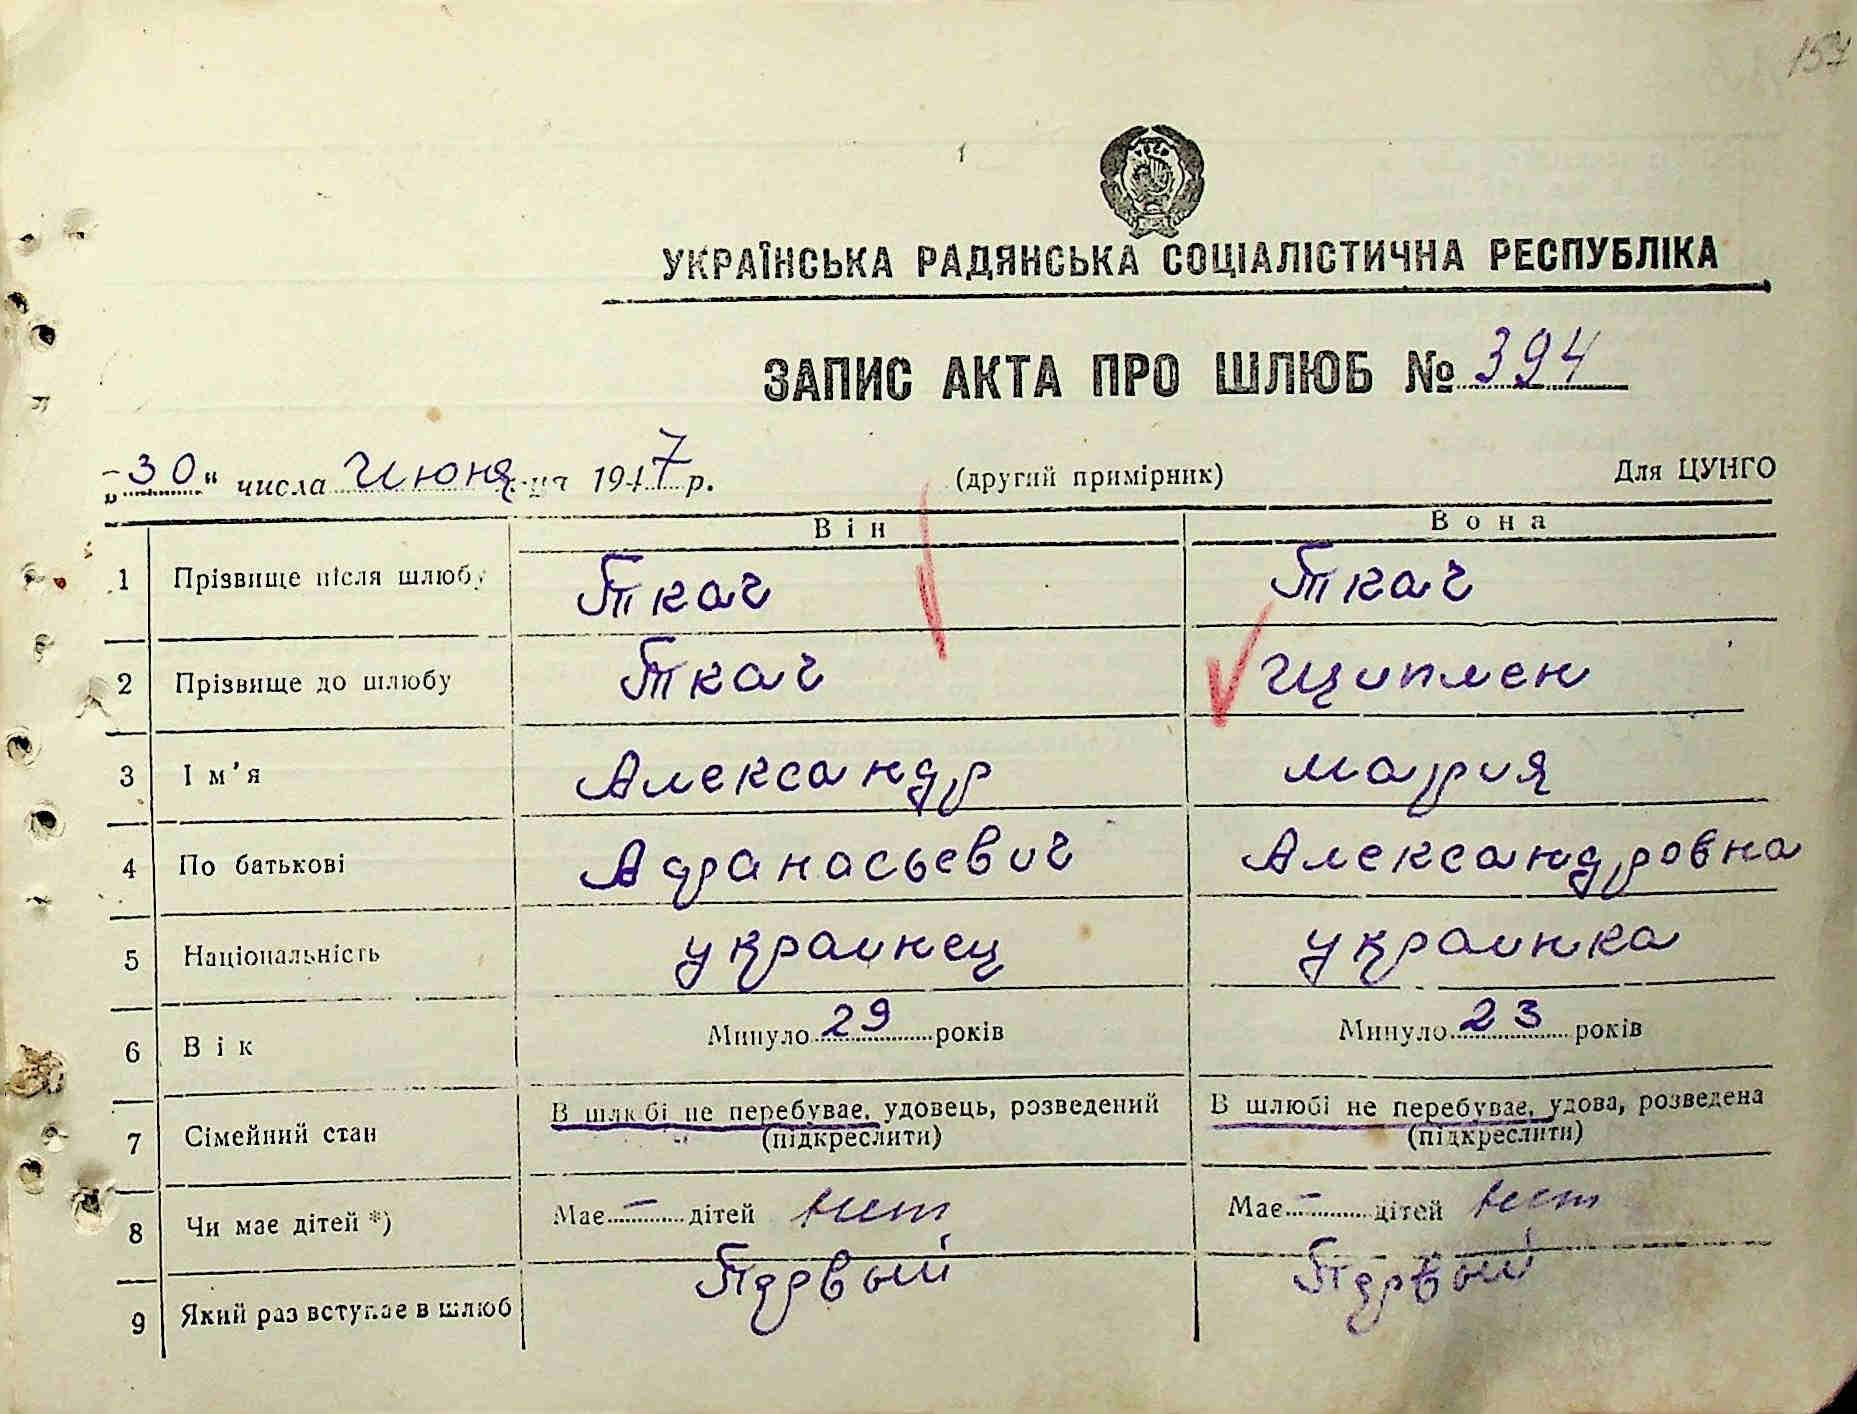 157
УКРАЇНСЬКА РАДЯНСЬКА СОЦІАЛІСТИЧНА РЕСПУБЛІКА
ЗАПИС АКТА ПРО ШЛЮБ № 394
„30“ числа Июня м-ця 1947 р. (другий примірник) Для ЦУНГО
Він Вона
1 Прізвище після шлюбу Ткач Ткач
2 Прізвище до шлюбу Ткач Щиплен
3 Ім'я Александр Мария
4 По батькові Афанасьевич Александровна
5 Національність украинец украинка
6 Вік Минуло 29 років Минуло 23 років
7 Сімейний стан В шлюбі не перебуває, удовець, розведений (підкреслити) В шлюбі не перебуває, удова, розведена (підкреслити)
8 Чи має дітей *) Має – дітей нет Має – дітей нет
9 Який раз вступає в шлюб Первый Первый